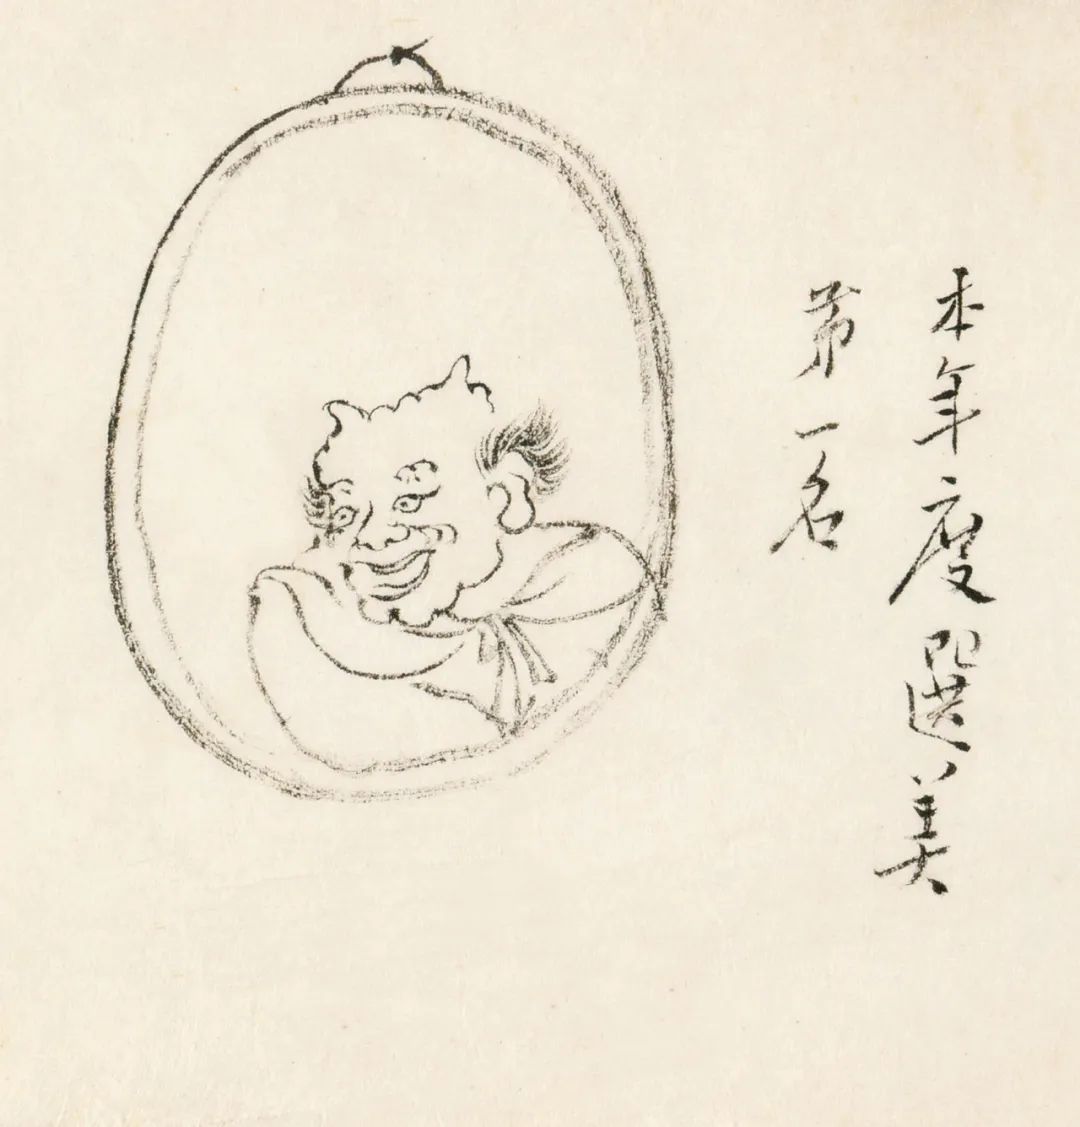 本年度選美
第一名